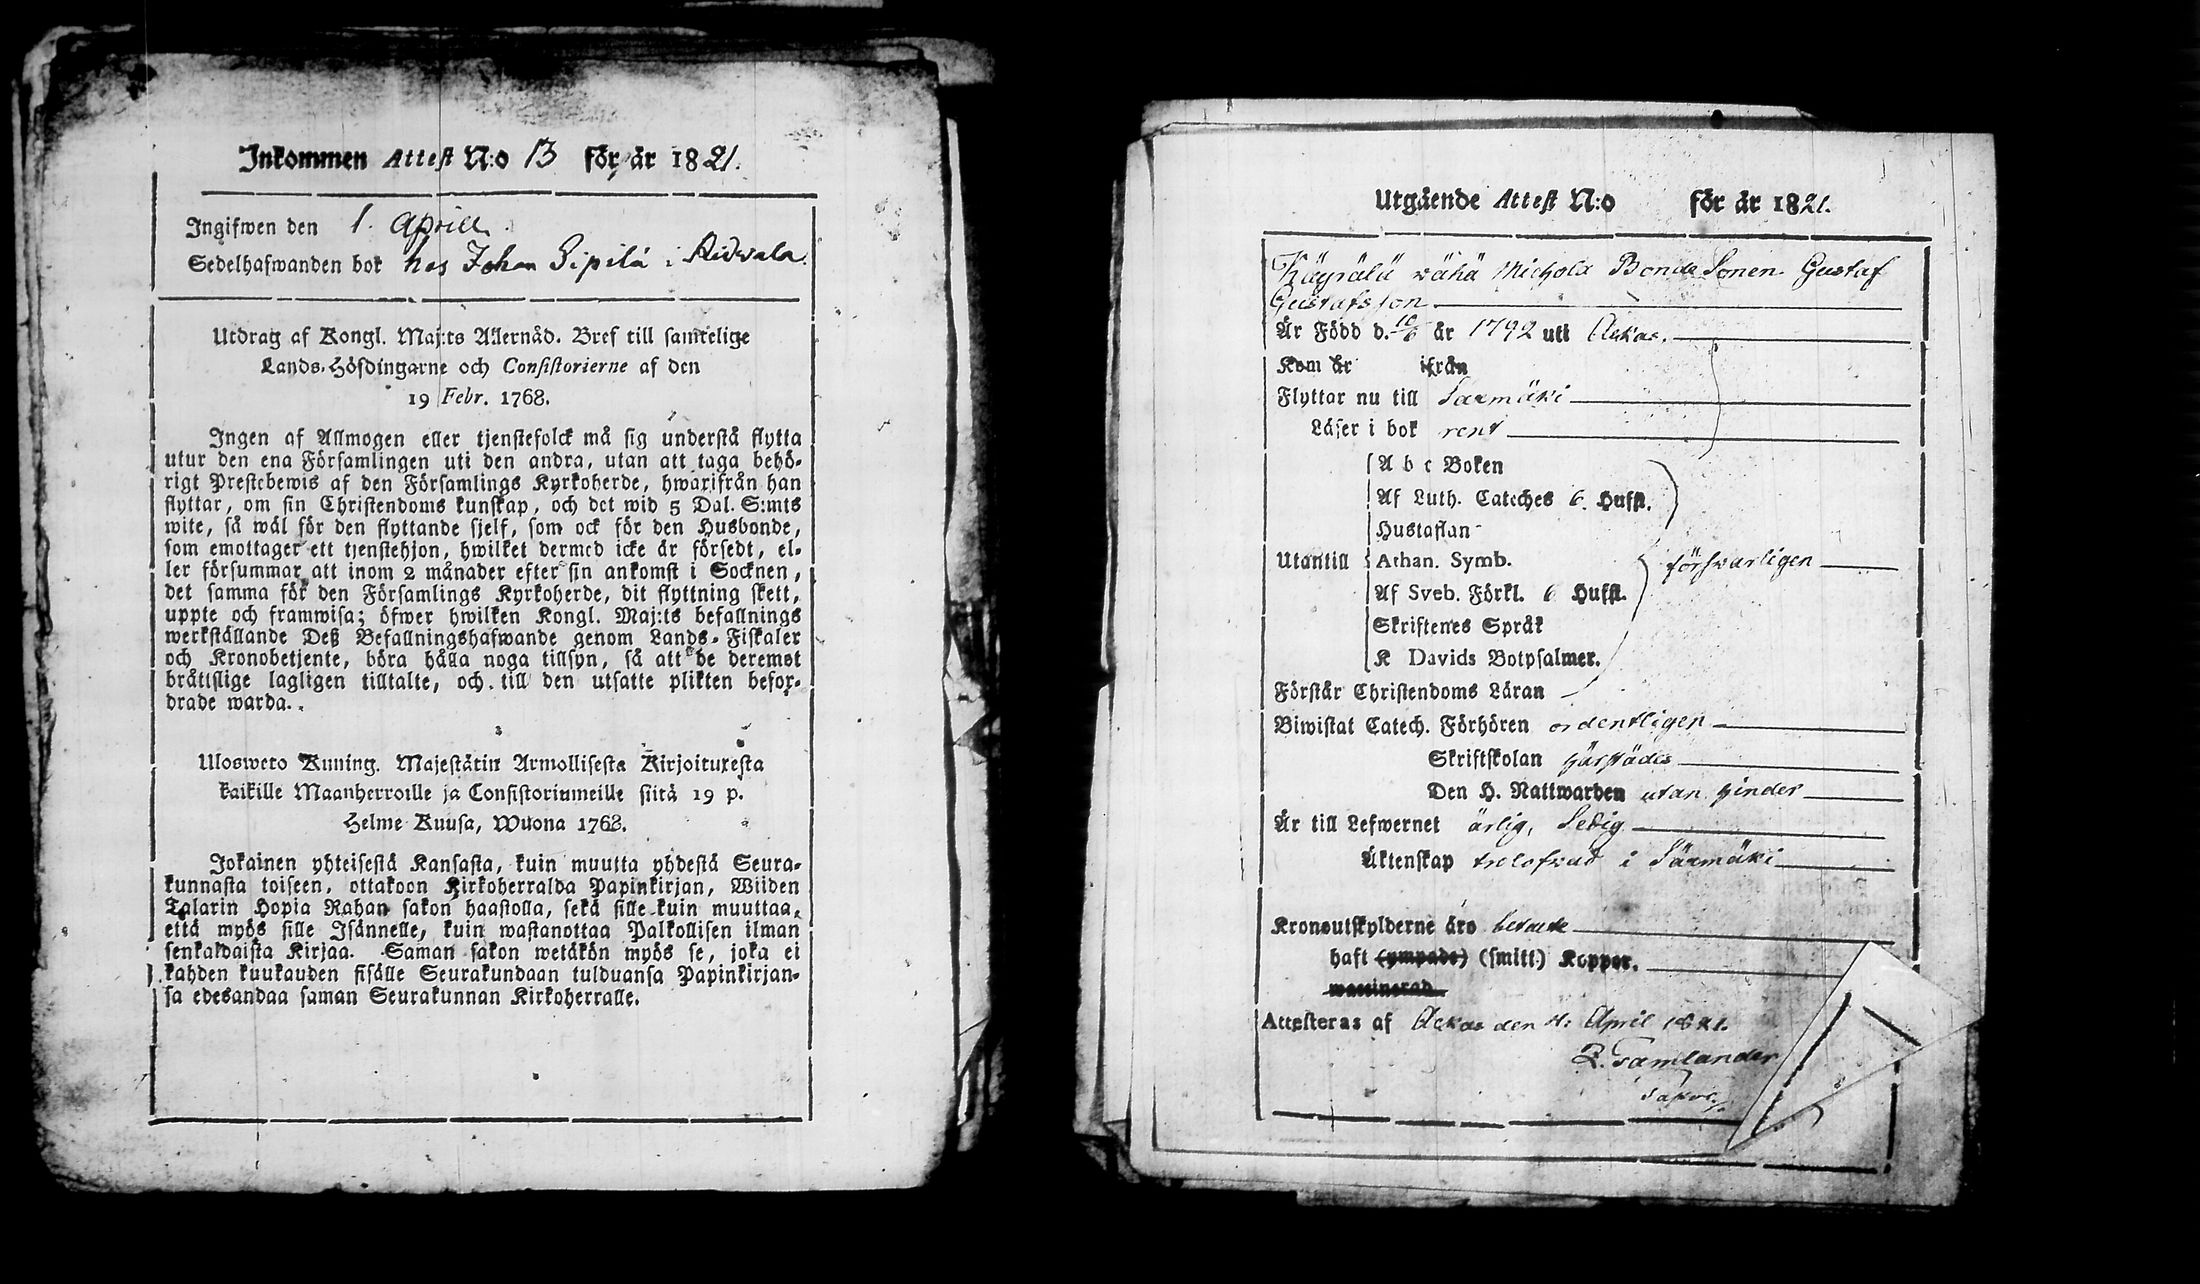 Inkommen Attest N:o 13 för år 1821.
Ingifwen den 1. Aprill
Sedelhafwanden bor hos Johan Sipilä i Aidvala.
Utdrag af Kongl. Maj:ts Allernåd. Bref till samtelige
Lands-Höfdingarne och Consistorierne af den
19 Febr. 1768.
Ingen af Allmogen eller tjenstefolck må sig understå flytta
utur den ena Församlingen uti den andra, utan att taga behö-
rigt Prestebewis af den Församlings Kyrkoherde, hwarifrån han
flyttar, om sin Christendoms kunskap, och det wid 5 Dal. S:mts
wite, så wäl för den flyttande sjelf, som ock för den Husbonde,
som emottager ett tjenstehjon, hwilket dermed icke är försedt, el-
ler försummar att inom 2 månader efter sin ankomst i Socknen,
det samma för den Församlings Kyrkoherde, dit flyttning skett,
uppte och framwisa; öfwer hwilken Kongl. Maj:ts befallnings
werkställande Deß Befallningshafwande genom Lands-Fiskaler
och Kronobetjente, böra hålla noga tillsyn, så att de deremot
bråttslige lagligen tilltalte, och till den utsatte plikten befor-
drade warda.
Uloswето Kuning. Majestätin Armollisesta Kirjoituxesta
kaikille Maanherroille ja Consistoriumeille siitä 19 p.
Helme Kuusa, Wuona 1768.
Jokainen yhteisestä Kansasta, kuin muutta yhdestä Seura-
kunnasta toiseen, ottakoon Kirkoherralda Papinkirjan, Wiiden
Talarin Hopia Rahan sakon haastolla, sekä sille kuin muuttaa,
että myös sille Isännelle, kuin wastanottaa Palkollisen ilman
senkaldaista Kirjaa. Saman sakon wetäkön myös se, joka ei
kahden kuukauden sisälle Seurakundaan tulduansa Papinkirjan-
sa edesandaa saman Seurakunnan Kirkoherralle.
Utgående Attest N:o för år 1821.
Käyrälä wähä Michola Bonde Sonen Gustaf
Gustafsson
Är Född d. 10/6 år 1792 uti Ackas.
Kom år ifrån
Flyttar nu till Särmäki
Läser i bok rent
A b c Boken
Af Luth. Cateches 6. Hufst.
Hustaflan
Utantill Athan. Symb. försvarligen
Af Sveb. Förkl. 6 Hufst.
Skriftenes Språk
K Davids Botpsalmer.
Förstår Christendoms Läran
Biwistat Catech. Förhören ordentligen
Skriftskolan härstädes
Den H. Nattwarden utan hinder
Är till Lefwernet ärlig, Ledig
Äktenskap trolofvad i Särmäki
Kronoutskylderne äro betalte
haft (ympade) (smitt.) Koppor.
waccinerad
Attesteras af Ackas den 4: April 1821.
Tamlander